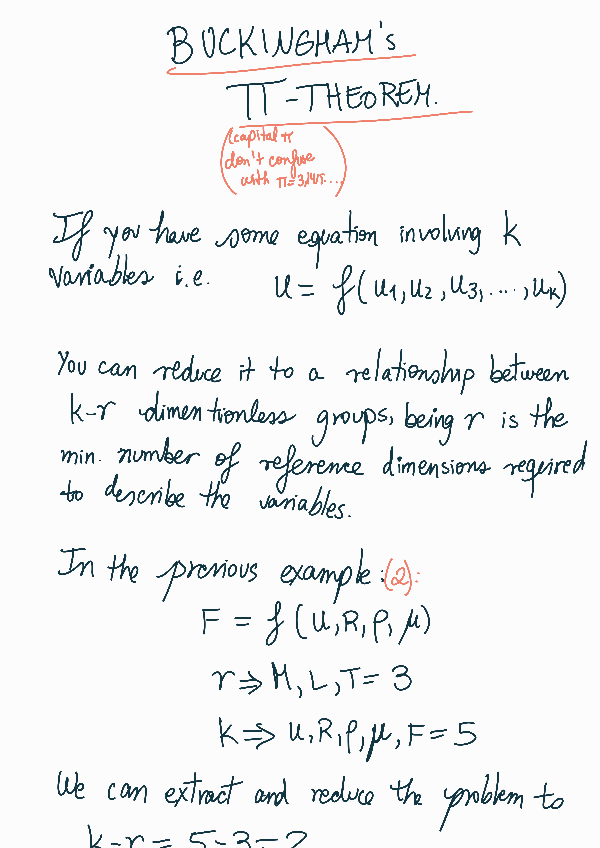 BUCKINGHAM's
Π-THEOREM.
(capital π
don't confuse
with π=3,1415...)
If you have some equation involving k
variables i.e. u = f(u1, u2, u3, ..., uk)
You can reduce it to a relationship between
k-r dimentionless groups, being r is the
min. number of reference dimensions required
to describe the variables.
In the previous example:(2):
F = f(u, R, ρ, μ)
r ⇒ M, L, T = 3
k ⇒ u, R, ρ, μ, F = 5
We can extract and reduce the problem to
k-r = 5-3=2